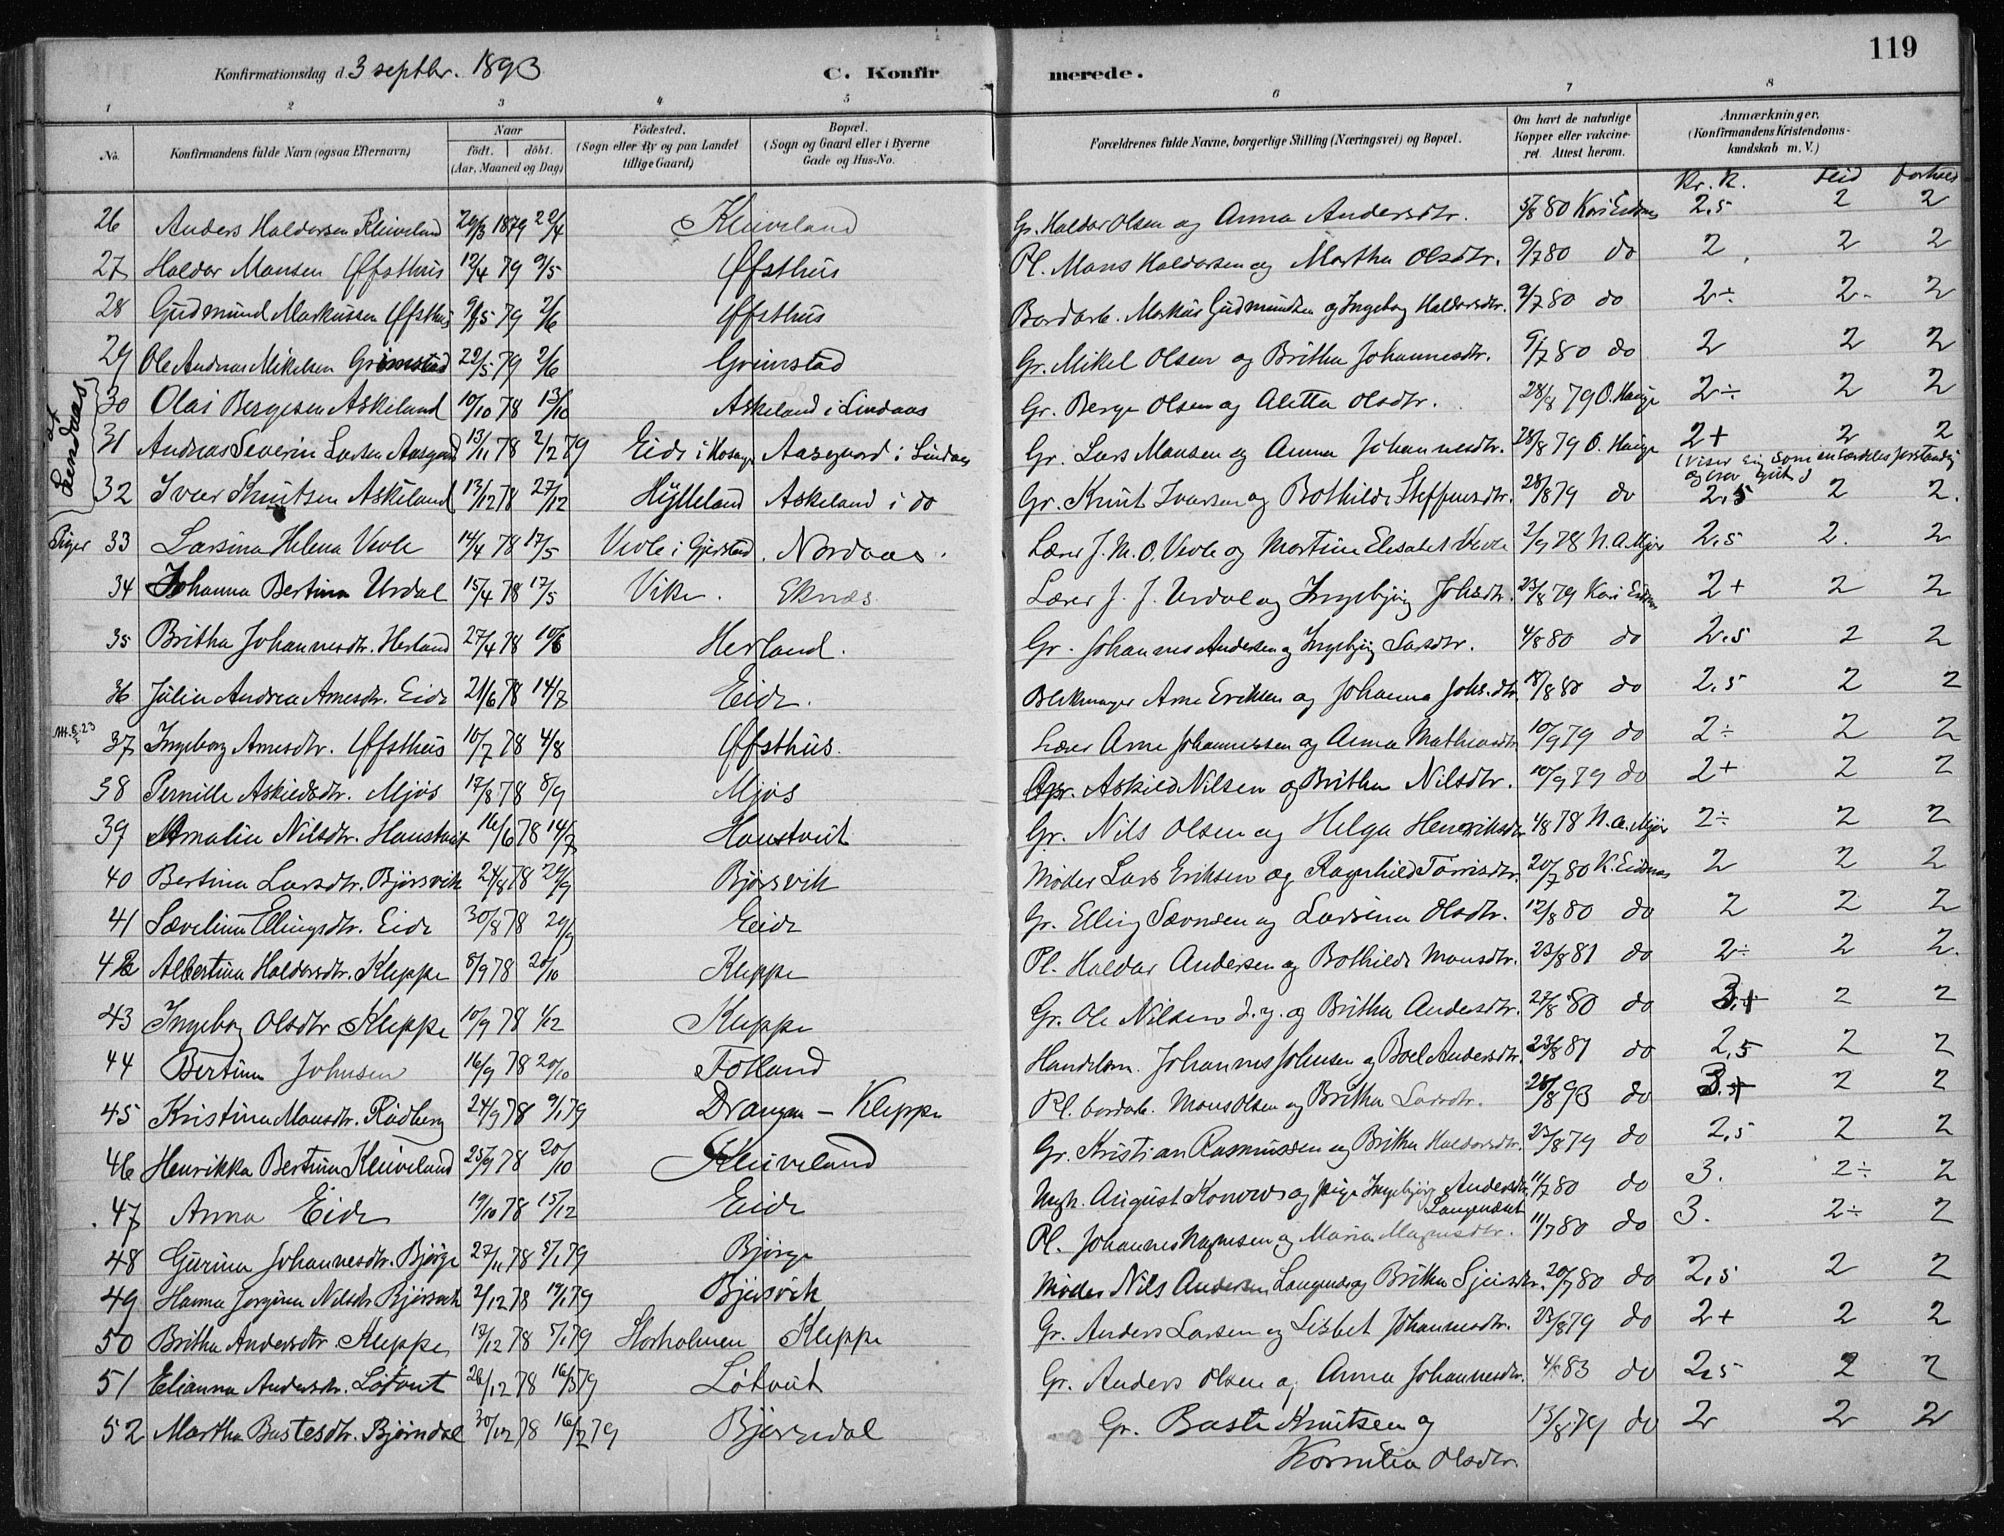 119
Konfirmationsdag d. 3 septbr. 1893 C. Konfir merede.
1 2 3 4 5 6 7 8
No. Konfirmandens fulde Navn (ogsaa Efternavn) Naar født. døbt. (Aar, Maaned og Dag) Fødested. (Sogn eller By og paa Landet tillige Gaard) Bopæl. (Sogn og Gaard eller i Byerne Gade og Hus-No. Forældrenes fulde Navne, borgerlige Stilling (Næringsvei) og Bopæl. Om havt de naturlige Kopper eller vakcineret. Attest herom. Anmærkninger. (Konfirmandens Kristendomskundskab m. V.)
Kr. K. Flid Forhold
26 Anders Haldorsen Kleiveland 29/3 1879 22/4 Kleiveland Gr. Haldor Olsen og Anna Andersdtr. 5/8 80 Kari Eidsnes 2,5 2 2
27 Haldor Monsen Øfsthus 12/4 79 2/5 Øfsthus Pl. Mons Haldorsen og Martha Olsdtr. 9/7 80 do 2 2 2
28 Gudmund Markussen Øfsthus 9/5 79 2/6 Øfsthus Bordarb. Markus Gudmundsen og Ingeborg Haldorsdtr. 9/7 80 do 2÷ 2 2
29 Ole Andreas Mikelsen Grimstad 22/5 79 2/6 Grimstad Gr. Mikel Olsen og Britha Johannesdtr. 9/7 80 do 2 2 2
af Lindaas
30 Olai Bergesen Askeland 10/10 78 13/10 Askeland i Lindaas Gr. Berge Olsen og Aletta Olsdtr. 28/8 79 O. Hauge 2÷ 2 2
31 Andreas Severin Larsen Aasgaard 13/11 78 2/2 79 Eide i Hosanger Aasgaard i Lindaas Gr. Lars Monsen og Anna Johannesdtr. 28/8 79 O. Hauge 2+ 2 2
(Viser sig som en særdeles forstandig og brav gut)
32 Ivar Knutsen Askeland 13/12 78 27/12 Hylleland Askeland i do Gr. Knut Ivarsen og Bothilde Steffensdtr. 28/8 79 do 2,5 2 2.
Piger 33 Larsina Helena Vevle 14/4 78 17/5 Vevle i Gjerstad Nordaas. Lærer J. M. O. Vevle og Martine Elisabet Vevle 2/9 78 N. A. Mjøs 2,5 2. 2
34 Johanna Bertina Urdal 15/4 78 17/5 Vike. Eknæs Lærer J. J. Urdal og Ingebjørg Johsdtr. 23/8 79 Kari Eidsnes 2+ 2 2
35 Britha Johannesdtr. Herland 27/4 78 10/6 Herland. Gr. Johannes Andersen og Ingebjørg Larsdtr. 4/8 80 do 2,5 2 2
36 Julia Andrea Arnesdtr. Eide 21/6 78 14/7 Eide. Blikmager Arne Eriksen og Johanna Johs.dtr. 18/8 80 do 2,5 2 2
37 Ingeborg Arnesdtr. Øfsthus 10/7 78 4/8 Øfsthus. Lærer Arne Johannessen og Anna Mathiasdtr. 10/9 79 do 2÷ 2 2
38 Pernille Askildsdtr. Mjøs 17/8 78 8/9 Mjøs Gr. Askild Nilsen og Britha Nilsdtr. 10/9 79 do 2+ 2 2
39 Amalia Nilsdtr. Haustveit 16/6 78 14/7 Haustveit Gr. Nils Olsen og Helga Henriksdtr. 4/8 78 N. A. Mjøs 2÷ 2 2
40 Bertina Larsdtr. Bjørsvik 24/8 78 29/9 Bjørsvik Møller Lars Eriksen og Ragnhild Torrisdtr. 20/7 80 K. Eidsnes 2 2 2
41 Sævelina Ellingsdtr. Eide 30/8 78 29/9 Eide Gr. Elling Sævnsen og Larsina Olsdtr. 12/8 80 do 2 2 2
42 Albertina Haldorsdtr. Kleppe 5/9 78 20/10 Kleppe Pl. Haldor Andersen og Bothilde Monsdtr. 23/8 81 do 2÷ 2 2.
43 Ingeborg Olsdtr Kleppe 10/9 78 1/12 Kleppe Gr. Ole Nilsen d. y. og Britha Andersdtr. 27/8 80 do 3+ 2 2
44 Bertina Johnsen 16/9 78 20/10 Totland Handelsm. Johannes Johnsen og Boel Andersdtr. 23/8 81 do 2,5 2 2
45 Kristina Monsdtr. Rødberg 24/9 78 9/1 79 Drangen – Kleppe Pl. bordarb. Mons Olsen og Britha Larsdtr. 28/8 93 do 3+ 2 2
46 Henrikka Bertina Kleiveland 25/9 78 20/10 Kleiveland Gr. Kristian Rasmussen og Britha Haldorsdtr. 23/8 79 do 2,5 2 2
47 Anna Eide 19/10 78 15/12 Eide Ungk. August Konow og pige Ingebjørg Andersdtr. Langenæset 11/7 80 do 3. 2÷ 2
48 Gurina Johannesdtr. Bjørge 27/11 78 5/1 79 Bjørge Pl. Johannes Magnesen og Maria Magnesdtr. 11/7 80 do 3. 2÷ 2
49 Hanna Jorgina Nilsdtr Bjørsvik 2/12 78 19/1 79 Bjørsvik Møller Nils Andersen Langenæs og Britha Sjursdtr. 20/7 80 do 2,5 2 2
50 Britha Andersdtr Kleppe 13/12 78 5/1 79 Storholmen Kleppe Gr. Anders Larsen og Lisbet Johannesdtr. 23/8 79 do 2+ 2 2
51 Elianna Andersdtr. Løtveit 26/12 78 16/3 79 Løtveit Gr. Anders Olsen og Anna Johannesdtr. 83 do 2,5 2 2
52 Martha Bastesdtr. Bjørndal 30/12 78 16/2 79 Bjørndal Gr. Baste Knutsen og Kornelia Olsdtr. 13/8 79 do 2 2 2